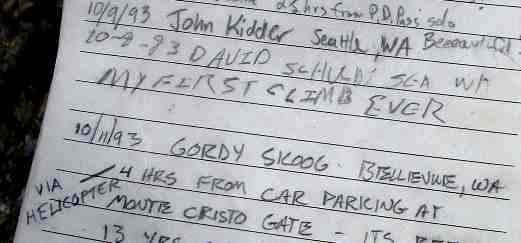 25 hrs from P.D. Pass solo
10/9/93 John Kidder Seattle, WA Beeeautiful
10-9-93 DAVID SEA WA
MY FIRST CLIMB EVER
10/11/93 GORDY SKOOG. BELLEVUE, WA
VIA HELICOPTER 4 HRS FROM CAR PARKING AT
MONTE CRISTO GATE - ITS BEEN
13 YRS